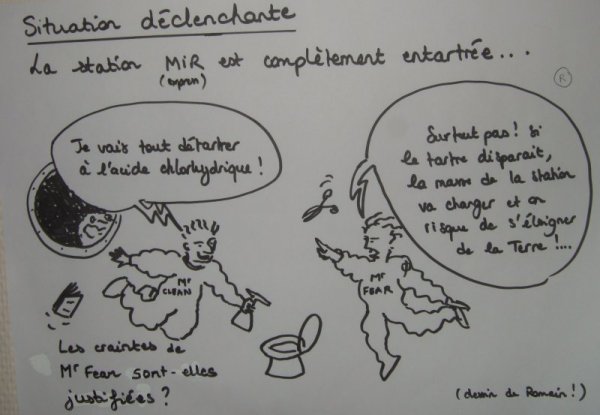 Situation déclenchante
La station MIR est complètement entartrée...
R
Je vais tout détartrer
à l'acide chlorhydrique !
Surtout pas ! Si
le tartre disparait,
la masse de la station
va changer et on
risque de s'éloigner
de la Terre !....
Mr
CLEAN
Mr
FEAR
Les craintes de
Mr Fear sont-elles
justifiées ?
(dessin de Romain !)